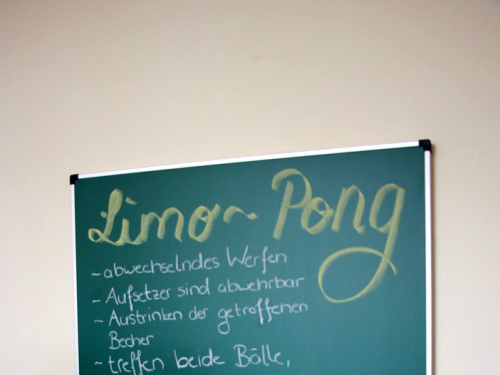 Limo~ Pong
~ abwechselndes Werfen
~ Aufsetzer sind abwehrbar
~ Austrinken der getroffenen
Becher
~ treffen beide Bälle,